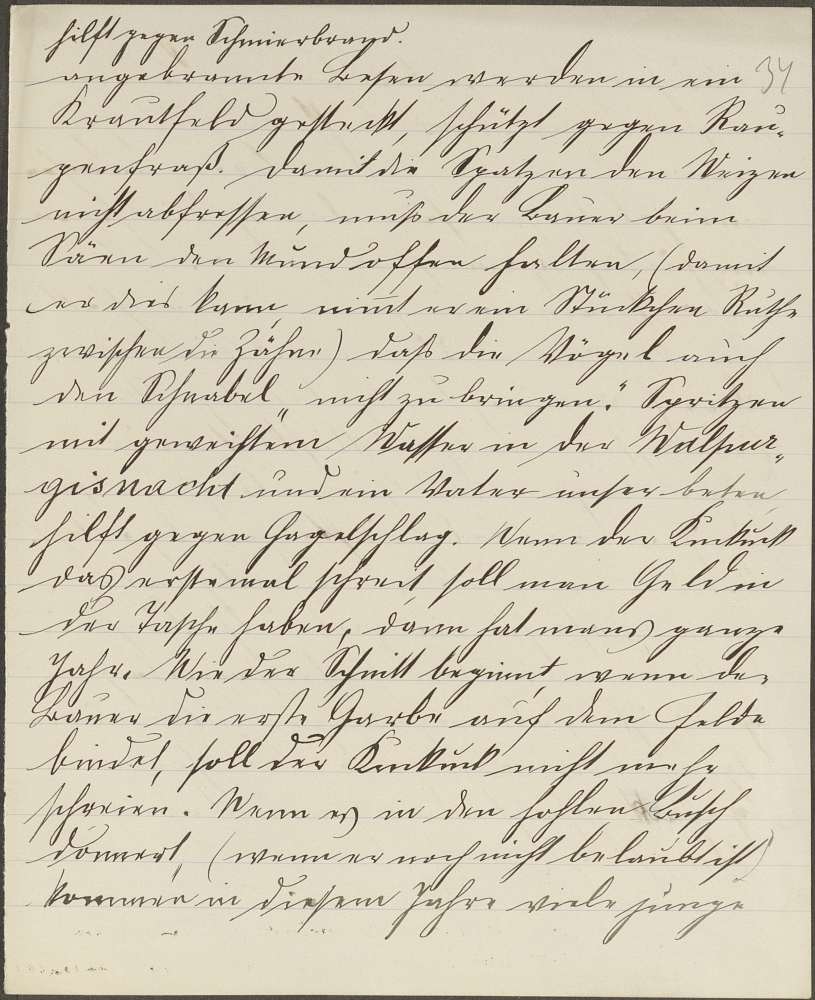 hilft gegen Schmierbrand.
angebrannte Besen werden in ein 34
Krautfeld gesteckt, schützt gegen Rau-
penfraß. Damit die Spatzen den Weizen
nicht abfressen, muß der Bauer beim
Säen den Mund offen halten, (damit
er dies kann, nim̄t er ein Stückchen Ruthe
zwischen die Zähne) daß die Vögel auch
den Schnabel „nicht zu bringen." Spritzen
mit geweihtem Wasser in der Walpur-
gisnacht und ein Vater unser beten,
hilft gegen Hagelschlag. Wenn der Kuckuck
das erstemal schreit, soll man Geld in
der Tasche haben, dann hat mans ganze
Jahr. Wie der Schnitt beginnt wenn der
Bauer die erste Garbe auf dem Felde
bindet, soll der Kuckuck nicht mehr
schreien. Wenn es in den hohlen Busch
donnert, (wenn er noch nicht belaubt ist)
kommen in diesem Jahre viele junge